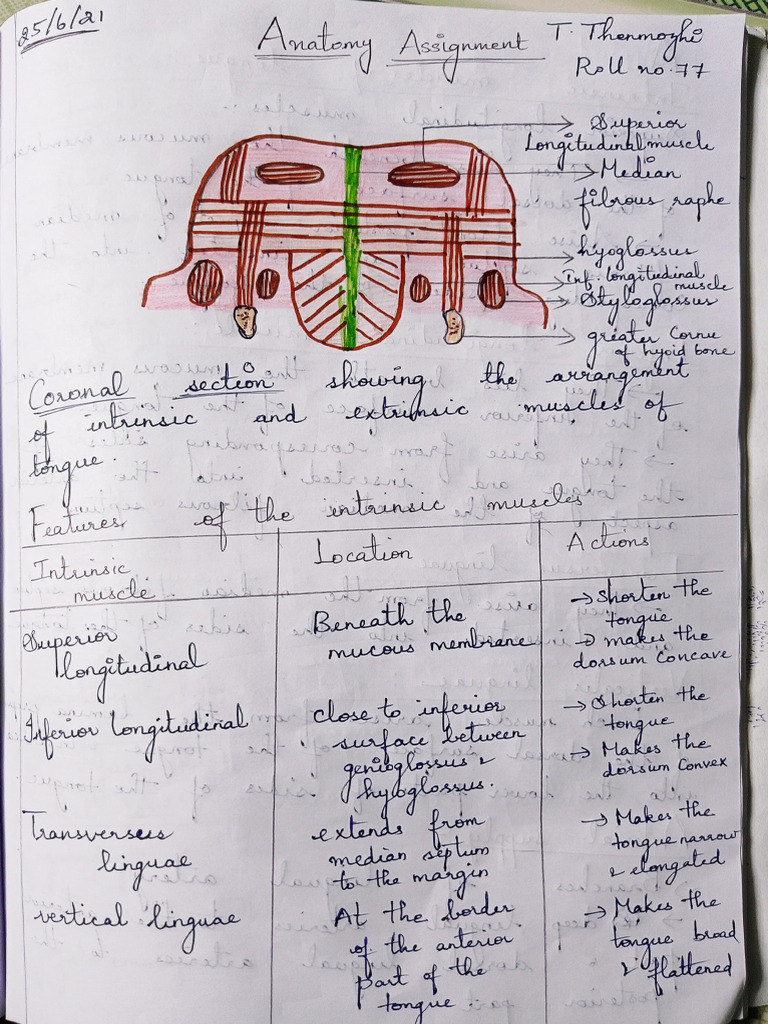 25/6/21
Anatomy Assignment
T. Thenmozhi
Roll no. 77
Superior
Longitudinal muscle
Median
fibrous raphe
hyoglossus
Inf. longitudinal
muscle
Styloglossus
greater Cornu
of hyoid bone
Coronal section showing the arrangement
of intrinsic and extrinsic muscles of
tongue.
Features of the intrinsic muscles
Intrinsic
muscle
Location
Actions
Superior
longitudinal
Beneath the
mucous membrane
→ Shorten the
tongue
→ makes the
dorsum concave
Inferior longitudinal
close to inferior
surface between
genioglossus &
hyoglossus.
→ Shorten the
tongue
→ Makes the
dorsum convex
Transverseus
linguae
extends from
median septum
to the margin
→ Makes the
tongue narrow
& elongated
vertical linguae
At the border
of the anterior
part of the
tongue
→ Makes the
tongue broad
& flattened